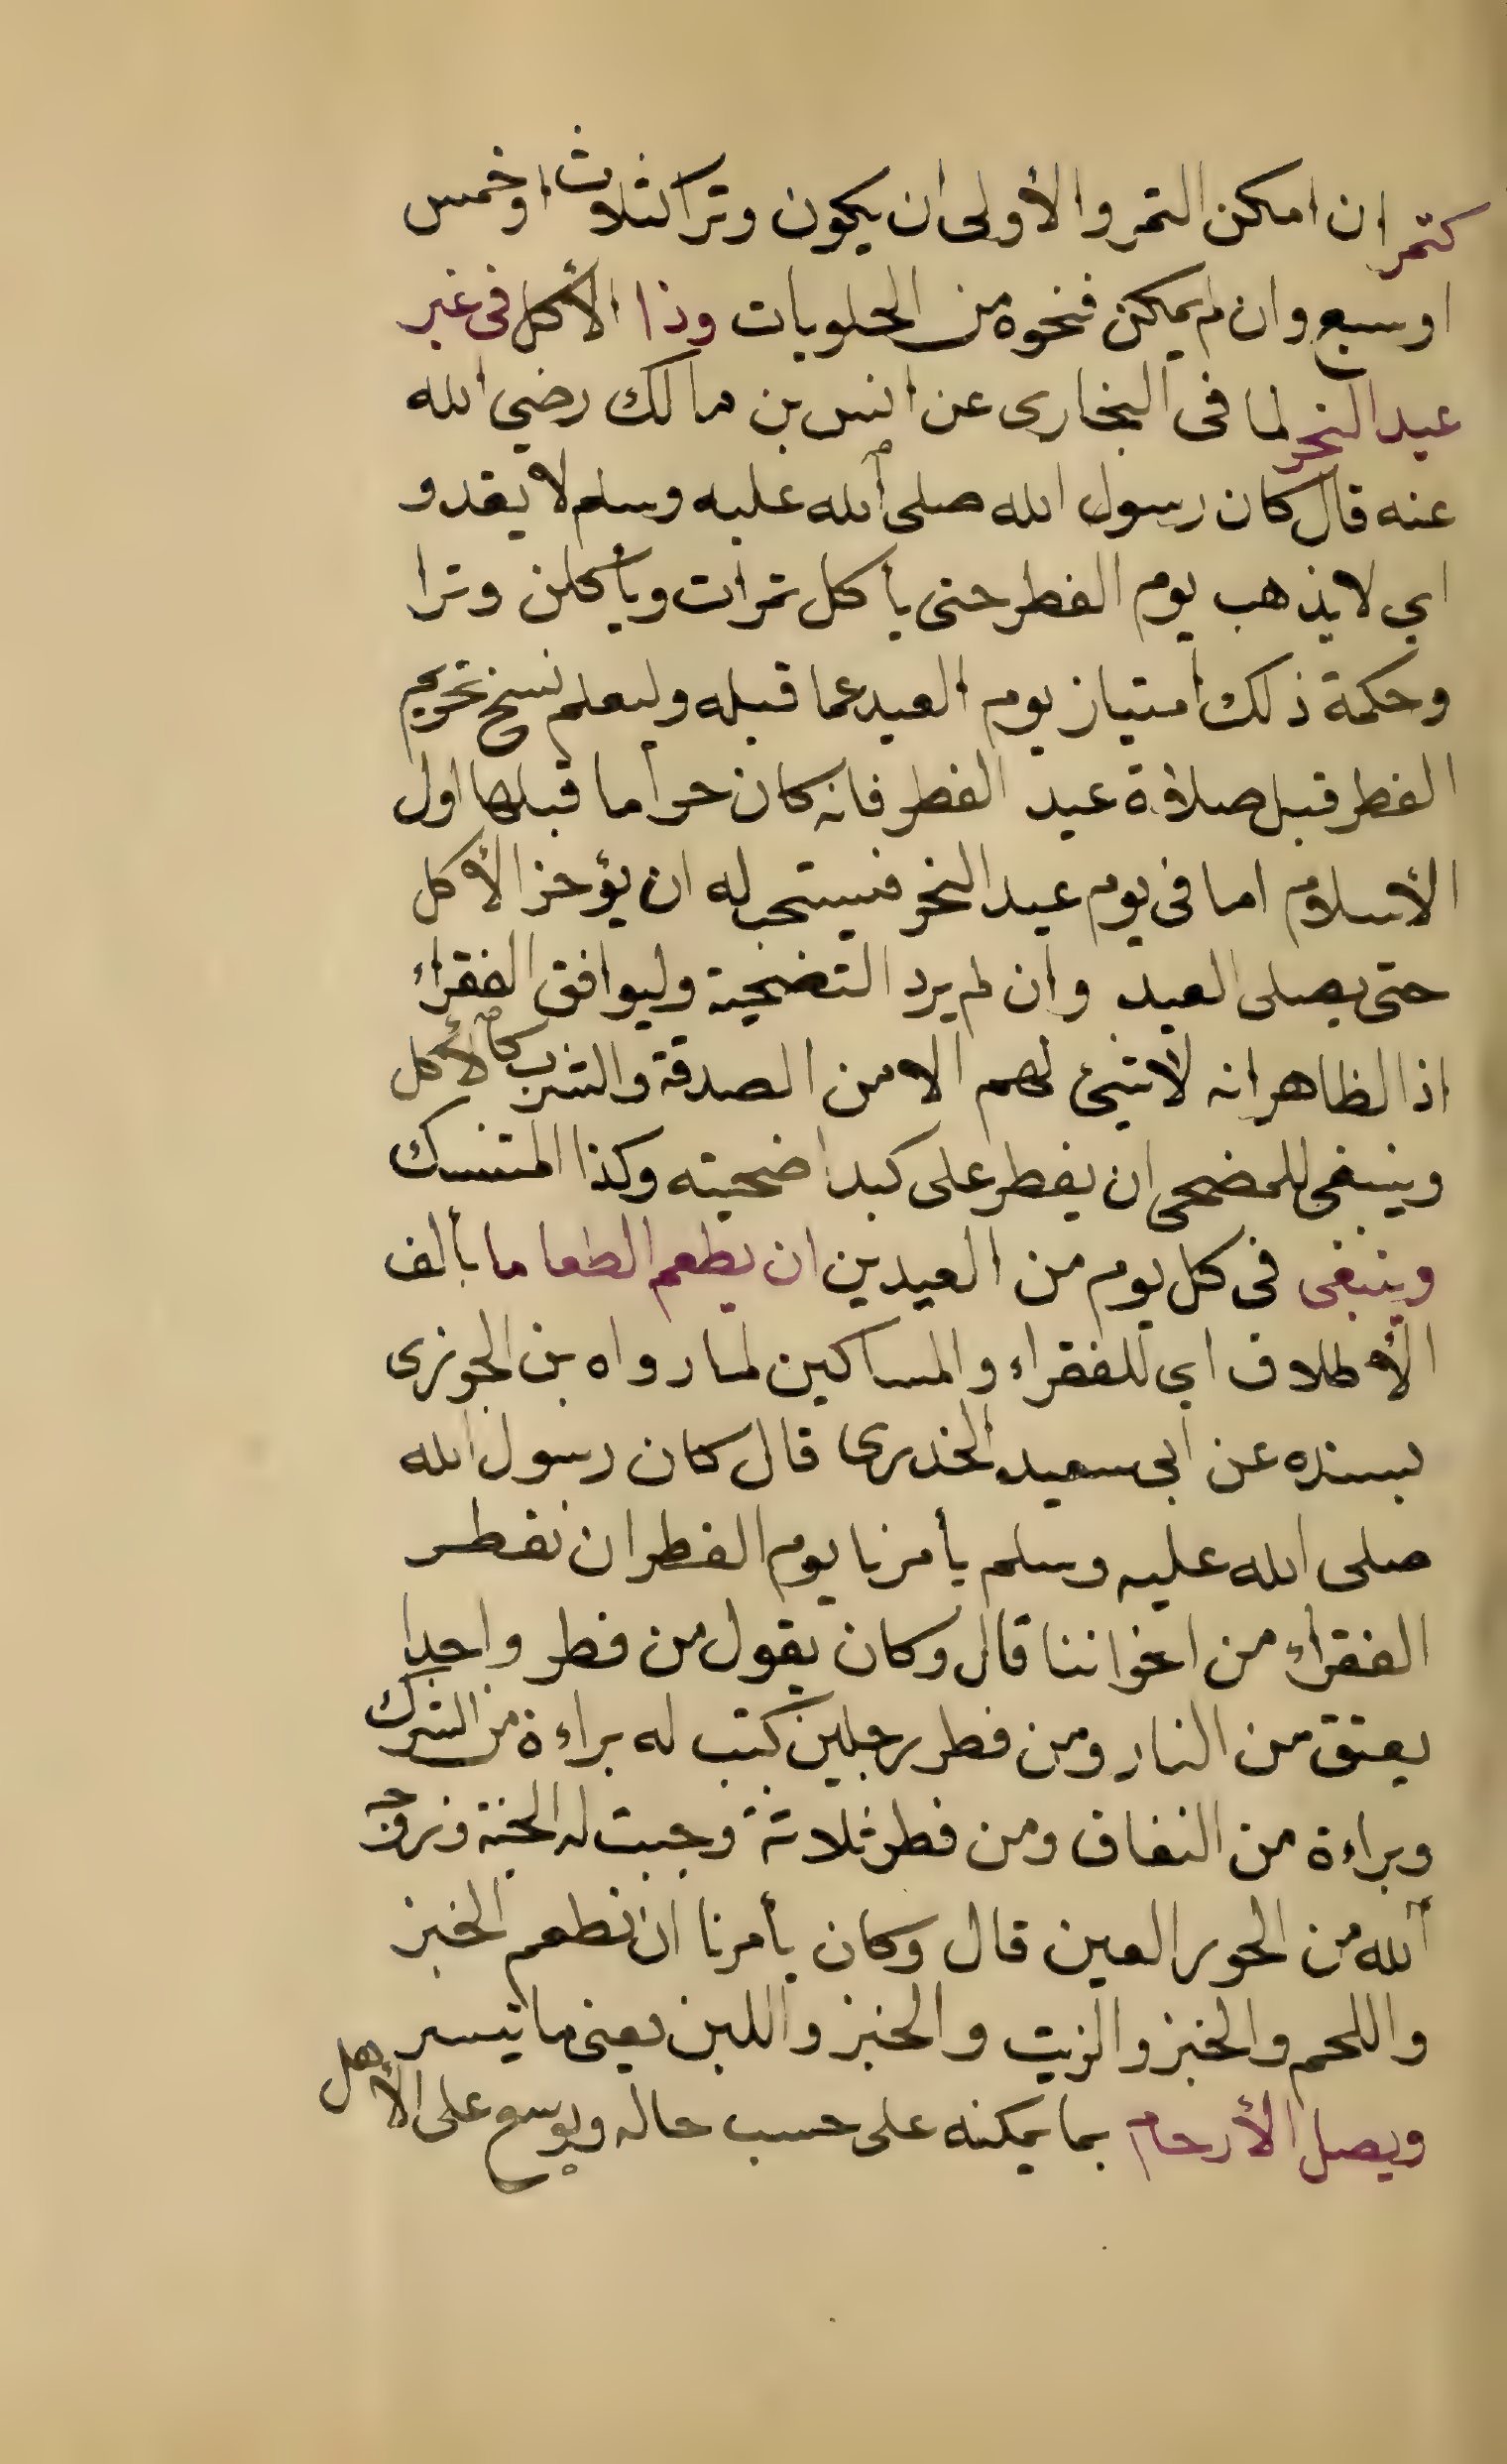 كتمر ان امكن التمر والأولى ان يكون وترا كثلاث اوخمس
اوسبع وان لم يمكن فنحوه من الحلويات وذا الأكل فى غير
عيد النحر لما فى البخارى عن انس بن مالك رضي الله
عنه قال كان رسول الله صلى الله عليه وسلم لا يغدو
اي لا يذهب يوم الفطر حتى يأكل تمرات ويأكلن وترا
وحكمة ذلك امتياز يوم العيد عما قبله وليعلم نسخ تحريم
الفطر قبل صلاة عيد الفطر فانه كان حراما قبلها اول
الأسلام اما فى يوم عيد النحر فيستحب له ان يؤخر الأكل
حتى يصلى العيد وان لم يرد التضحية وليوافق الفقراء
اذ الظاهر انه لا شئ لهم الا من الصدقة والشرب كالأكل
وينبغى للمضحى ان يفطر على كبد اضحيته وكذا المتنسك
وينبغى فى كل يوم من العيدين ان يطعم الطعاما بألف
الأطلاق اي للفقراء والمساكين لما رواه بن الجوزى
بسنده عن ابى سعيد الخدرى قال كان رسول الله
صلى الله عليه وسلم يأمرنا يوم الفطر ان نفطر
الفقراء من اخواننا قال وكان يقول من فطر واحدا
يعتق من النار ومن فطر رجلين كتب له براءة من الشرك
وبراءة من النفاق ومن فطر ثلاثة وجبت له الجنة وزوجه
الله من الحور العين قال وكان يأمرنا ان نطعم الخبز
واللحم والخبز والزيت والخبز واللبن يعنى ما تيسر
ويصل الأرحام بما يمكنه على حسب حاله ويوسع على الأهل